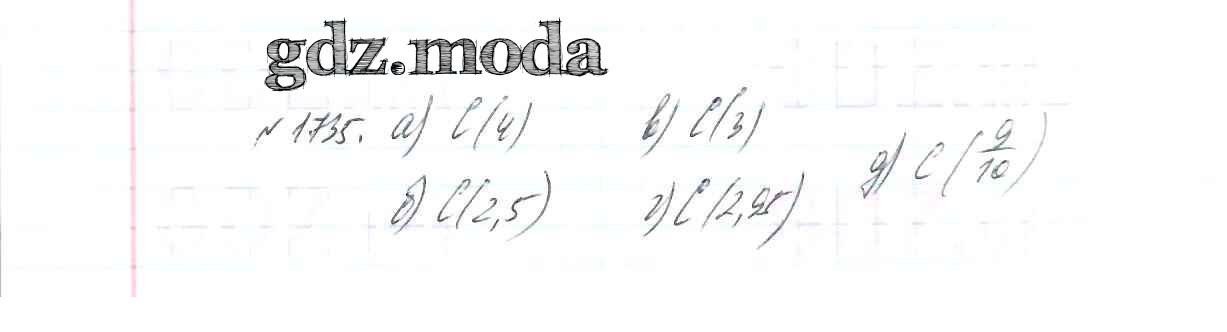 gdz.moda
№ 1.735. а) C(4) в) C(3) д) C(9/10)
б) C(2,5) г) C(2,95)